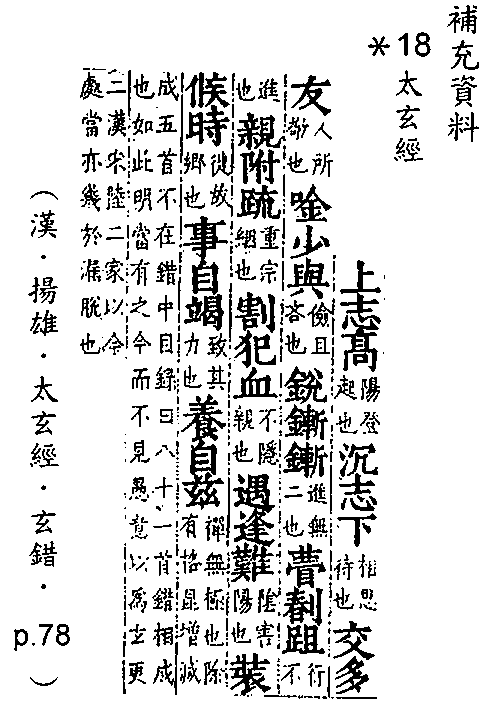 補充資料
*18 太玄經
上志高陽登起也沉志下相思待也交多
友人所敬也唫少與儉且吝也銳鏩鏩進無二也瞢剒跙行不
進也親附疏重宗姻也割犯血不隱親也遇逢難陰害陽也裝
候時從故鄉也事自竭致其力也養自茲禪無極也除有格昆增減
成五首不在錯中目錄曰八十一首錯相成
也如此明當有之今而不見愚意以為玄更
二漢宋陸二家以今
處當亦幾於漏脫也
（漢．揚雄．太玄經．玄錯．p.78）